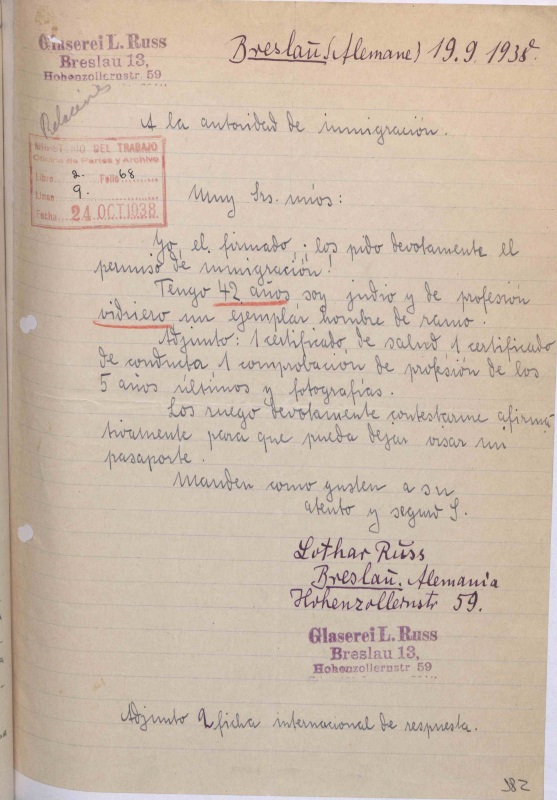 Glaserei L. Russ
Breslau 13,
Hohenzollernstr 59
Breslau (Alemane) 19.9.1938.
Relaciones
A la autoridad de inmigración.
MINISTERIO DEL TRABAJO
Oficina de Partes y Archivo
Libro 2. Folio 68
Linea 9.
Fecha 24 OCT 1938
Muy Srs. mios:
Yo, el firmado, los pido devotamente el
permiso de inmigración!
Tengo 42 años soy judio y de profesión
vidriero un ejemplar hombre de ramo.
Adjunto: 1 certificado de salud 1 certificado
de conducta 1 comprobación de profesión de los
5 años últimos y fotografías.
Los ruego devotamente contestarme afirma-
tivalmente para que pueda dejar visar mi
pasaporte.
Manden como gusten a su
atento y seguro S.
Lothar Russ
Breslau. Alemania
Hohenzollernstr 59.
Glaserei L. Russ
Breslau 13,
Hohenzollernstr 59
Adjunto 2 ficha internacional de respuesta.
382